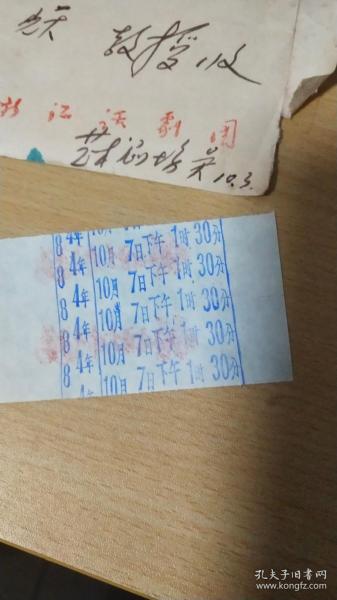 教授收
浙江话剧团
10.3.
84年10月7日下午1时30分
84年10月7日下午1时30分
84年10月7日下午1时30分
84年10月7日下午1时30分
84年10月7日下午1时30分
孔夫子旧书网